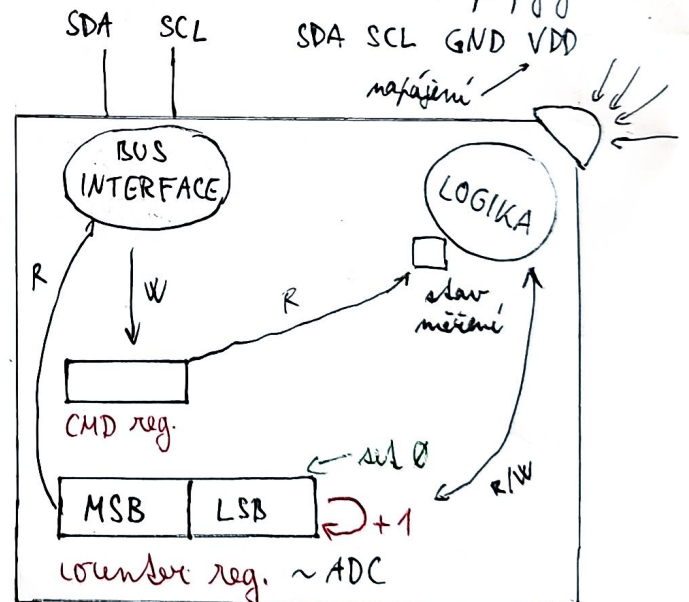 SDA SCL
SDA SCL GND VDD
napájení
BUS
INTERFACE
LOGIKA
R
W
R
stav
měření
CMD reg.
set 0
R/W
MSB LSB
+1
counter reg. ~ADC